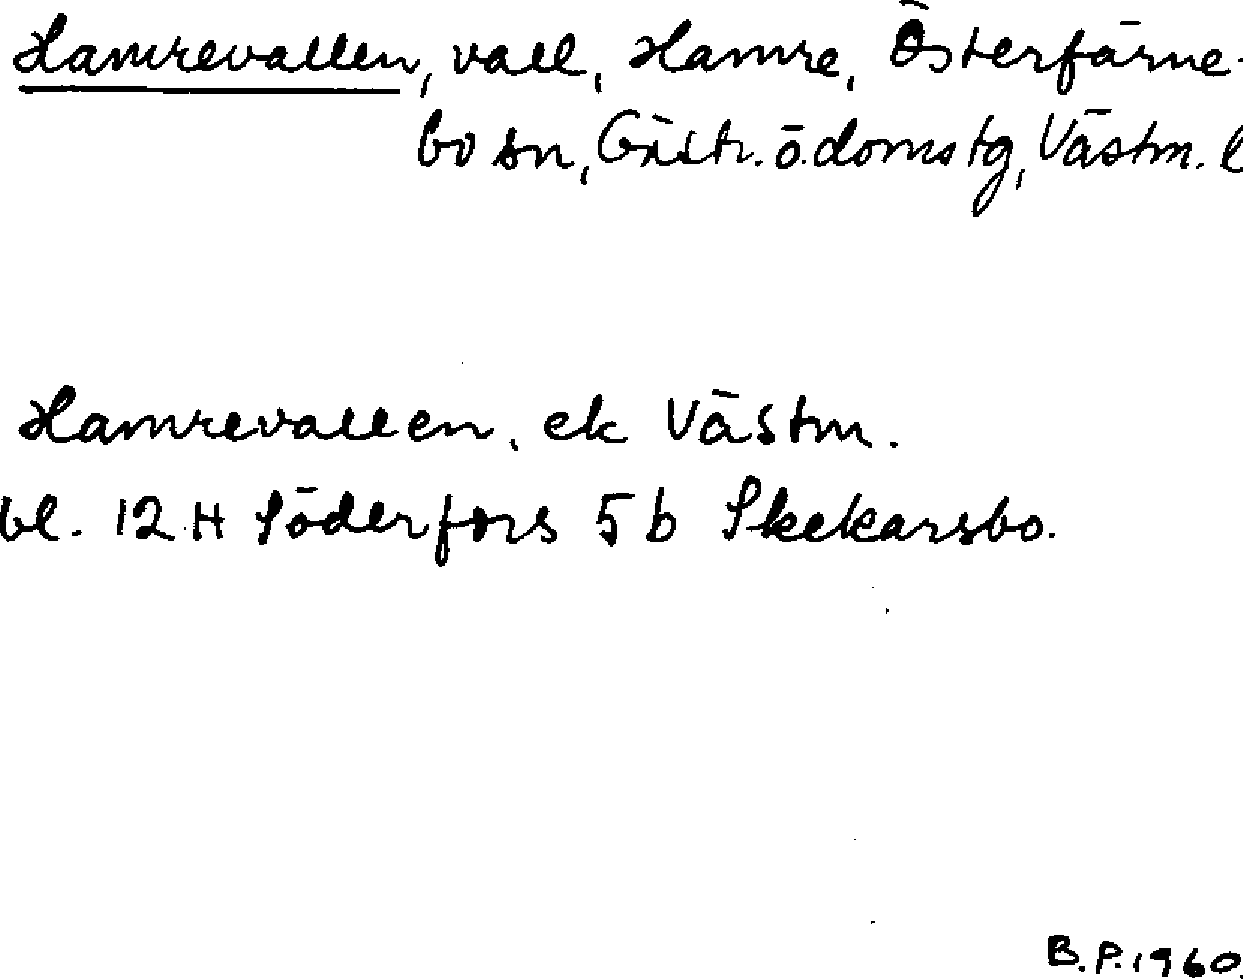 Hamrevallen, vall, Hamre, Österfärne-
bo sn, Gästr. ö. domstg, Västm. l
Hamrevallen, ek Västm.
bl. 12 H Söderfors 5 b Skekarsbo.
B.P. 1960.